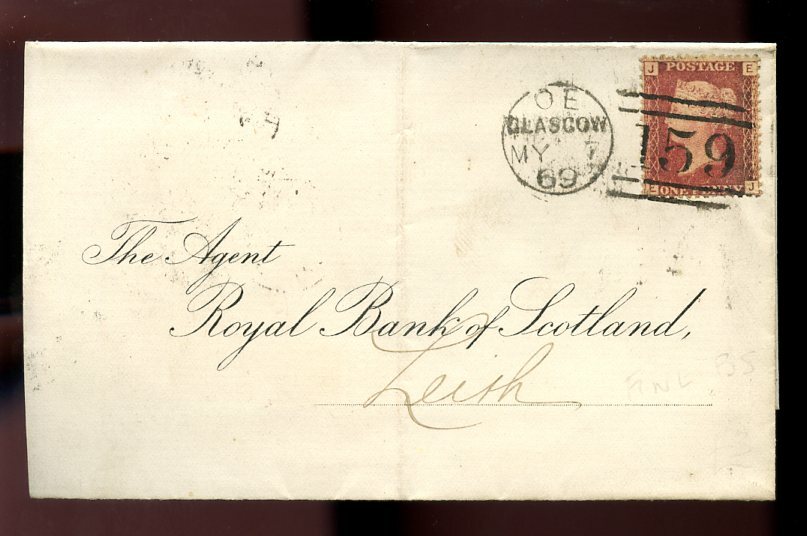 J POSTAGE E
O E
GLASGOW
MY 7
69
159
E ONE PENNY J
The Agent
Royal Bank of Scotland,
Leith